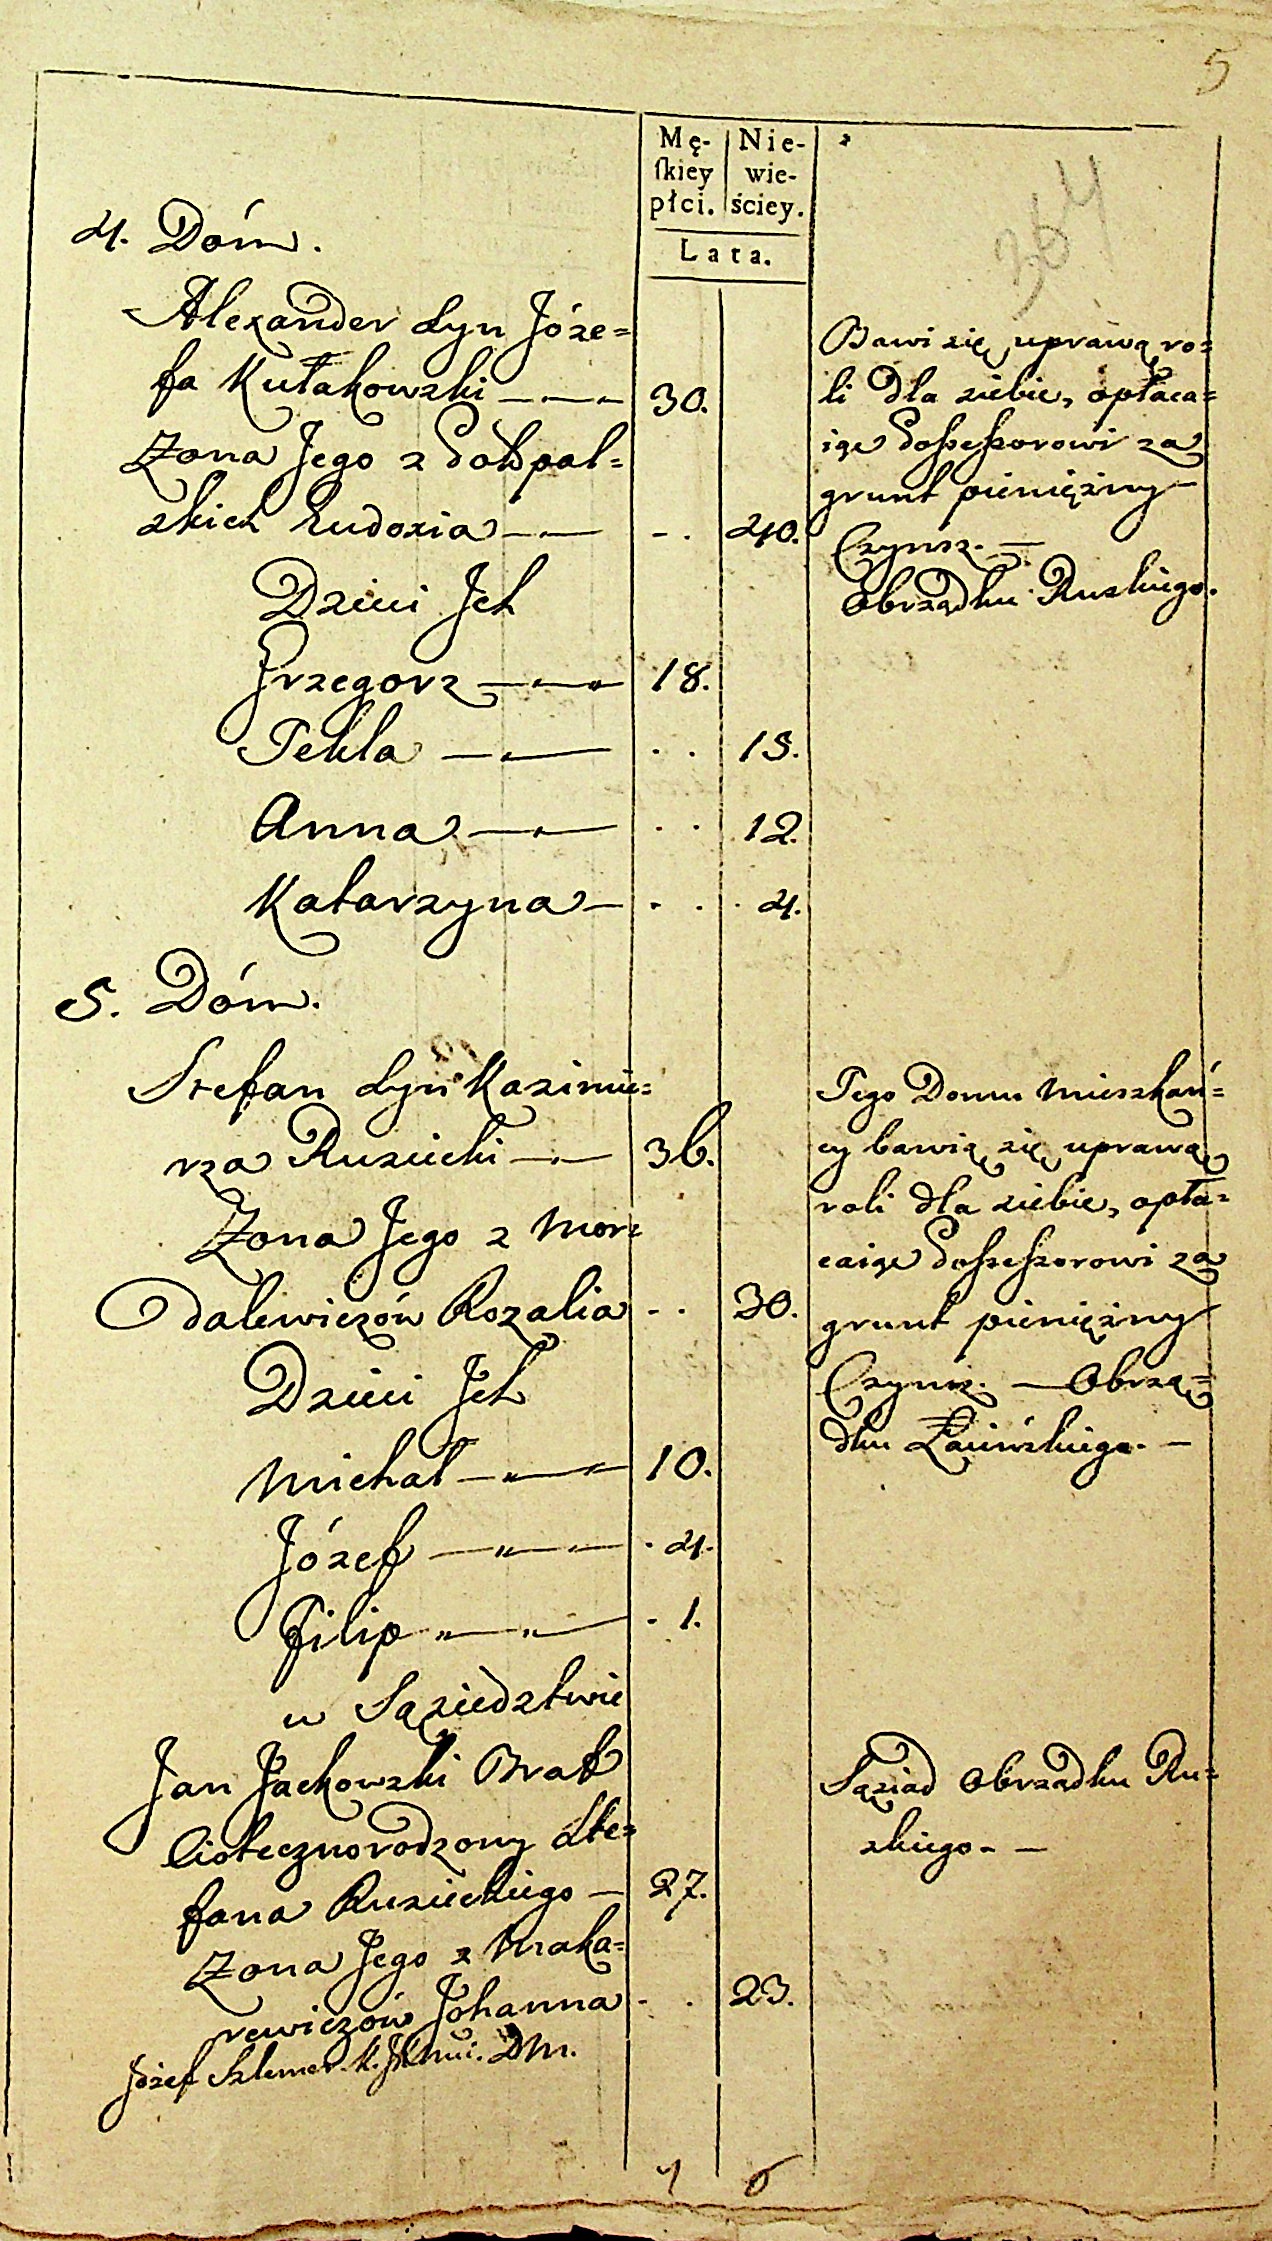 5
Mę-
ſkiey
płci.
Nie-
wie-
ściey.
Lata.
364
4. Dóm.
Alexander Syn Józe=
fa Kułakowski 30.
Bawi się uprawą ro=
li dla siebie, opłaca=
iąc Possessorowi za
grunt pieniężny
Czynsz. —
Obrządku Ruskiego.
Zona Jego z Podpal=
skich Eudoxia — - . 40.
Dzieci Jch
Grzegorz — 18.
Tekla — . . 15.
Anna — . . 12.
Katarzyna — . . . 4.
5. Dóm.
Stefan Syn Kazimie=
rza Rusiecki — 36.
Zona Jego z Mor=
dalewiczów Rozalia - . 30.
Tego Domu Mieszkań=
cy bawią się uprawą
roli dla siebie, opła=
caiąc Possessorowi za
grunt pieniężny
Czynsz. — Obrzą=
dku Łacińskiego. —
Dzieci Jch
Michał — 10.
Józef — . 4.
Filip — . 1.
w Sąsiedztwie
Jan Jackowski Brat
Ciotecznorodzony Ste=
fana Rusieckiego — 27.
Sąsiad Obrządku Ru=
skiego. —
Zona Jego z Maka=
rewiczów Johanna . . 23.
Józef Sklemer. K. DM.
7 6